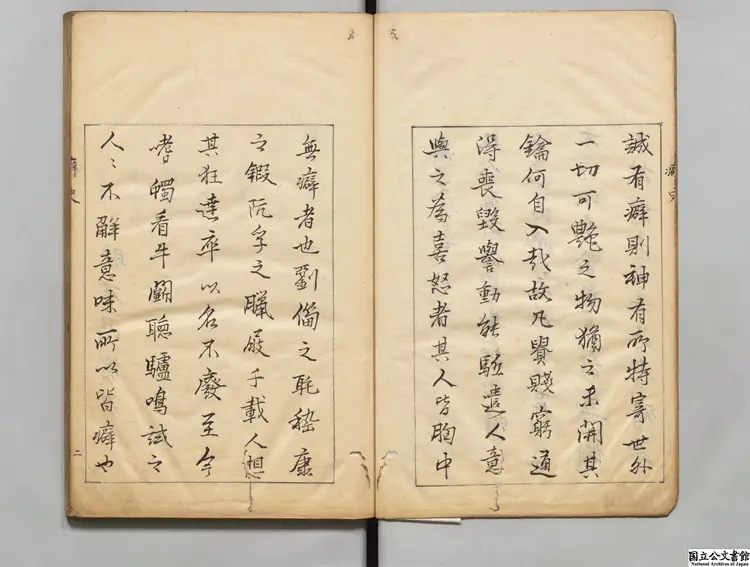 誠有癖則神有所特寄世外
一切可艷之物猶之未開其
鑰何自入哉故凡貴賤窮通
得喪毀譽動能驅遣人意
與之為喜怒者其人皆胸中
無癖者也劉伶之耽嵇康
之鍛阮孚之臘屐千載人想
其狂達卒以名不廢至今
嗜蠋看牛鬭聽驢鳴試之
人〻不解意味所以皆癖也
癖史
癖史
二
国立公文書館
National Archives of Japan